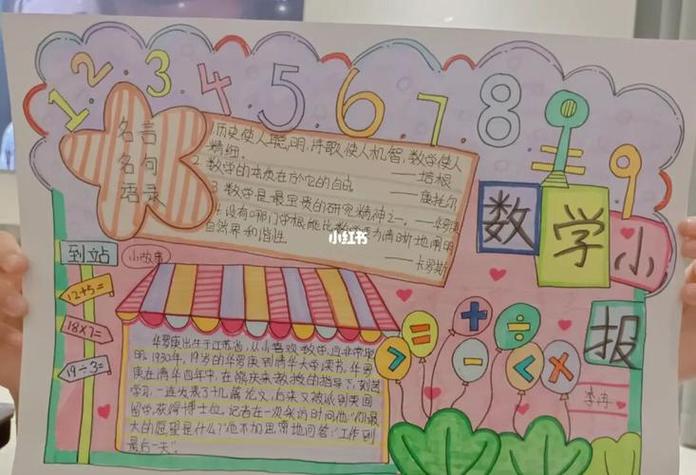 1.2.3.4.5.6.7.8.9
名言
名句
语录
1.历史使人聪明,诗歌使人机智,数学使人
精细. ——培根
2.数学的本质在于它的自由 ——康托尔
3.数学是最宝贵的研究精神之一. ——华罗庚
4.没有哪门学 能比数学 为清晰地阐明
自然界 和谐性
——卡罗斯
小红书
数学小报
到站
小故事
12+5=
18×7=
19÷3=
华罗庚出生于江苏省,从小喜欢数学,
明.1930年,19岁的华罗庚到清华大学读书.华罗
庚在清华四年中,在熊庆来教授的指导下,刻苦
学习,一连发表了十几篇论文,后来又被派到英国
留学,获得博士位.记者在一次采访时问他"你最
大的愿望是什么?"他不加思索地回答:"工作到
最后一天".
> = + - ÷ < ×
李冉